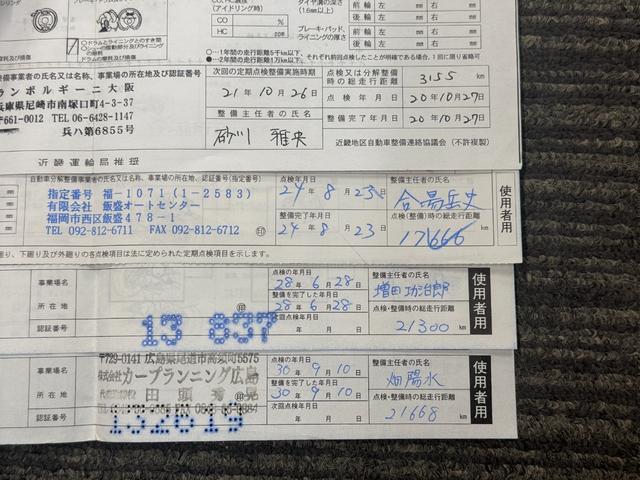 (アイドリング)
CO
%
HC
ppm
(1.6mm以上)
前輪 左 mm
後輪 左 mm
ブレーキ・パッド、ライニングの厚さ
前輪 左 mm
後輪 左 mm
○ドラムとライニングとのすき間
○…1年間の走行距離5千km以下、
摩耗及び損傷
分解整備事業者の氏名又は名称、事業場の所在地及び認証番号
ランボルギーニ大阪
兵庫県尼崎市南塚口町4-3-37
〒661-0012 TEL 06-6428-1147
兵ハ第6855号
次回の定期点検整備実施時期
21年10月26日
整備主任者の氏名
砂川 雅央
点検又は分解整備時の総走行距離
3155 km
点検年月日
20年10月27日
整備完了年月日
20年10月27日
近畿運輸局推奨
近畿地区自動車整備連絡協議会(不許複製)
自動車分解整備事業者の氏名又は名称、事業場の所在地、認証番号(指定番号)
指定番号 福-1071(1-2583)
有限会社 飯盛オートセンター
福岡市西区飯盛478-1
TEL 092-812-6711 FAX 092-812-6712
印
点検年月日
24年8月23日
整備完了年月日
24年8月23日
整備主任者の氏名
点検(整備)時の総走行距離
17666
使用者用
下廻り及び外廻りの各点検項目は法に定められた定期点検項目を示します。
事業場名
所在地
認証番号
13 837
印
点検の年月日
28年6月28日
整備を完了した年月日
28年6月28日
次回点検年月日
整備主任者の氏名
増田功治郎
点検・整備時の総走行距離
21300 km
使用者用
事業場名
所在地
認証番号
〒729-0141 広島県尾道市高須町5575
株式会社 カープランニング広島
代表取締役 田頭秀晃
132619
点検の年月日
30年9月10日
整備を完了した年月日
30年9月10日
次回点検年月日
整備主任者の氏名
畑陽水
点検・整備時の総走行距離
21668 km
使用者用